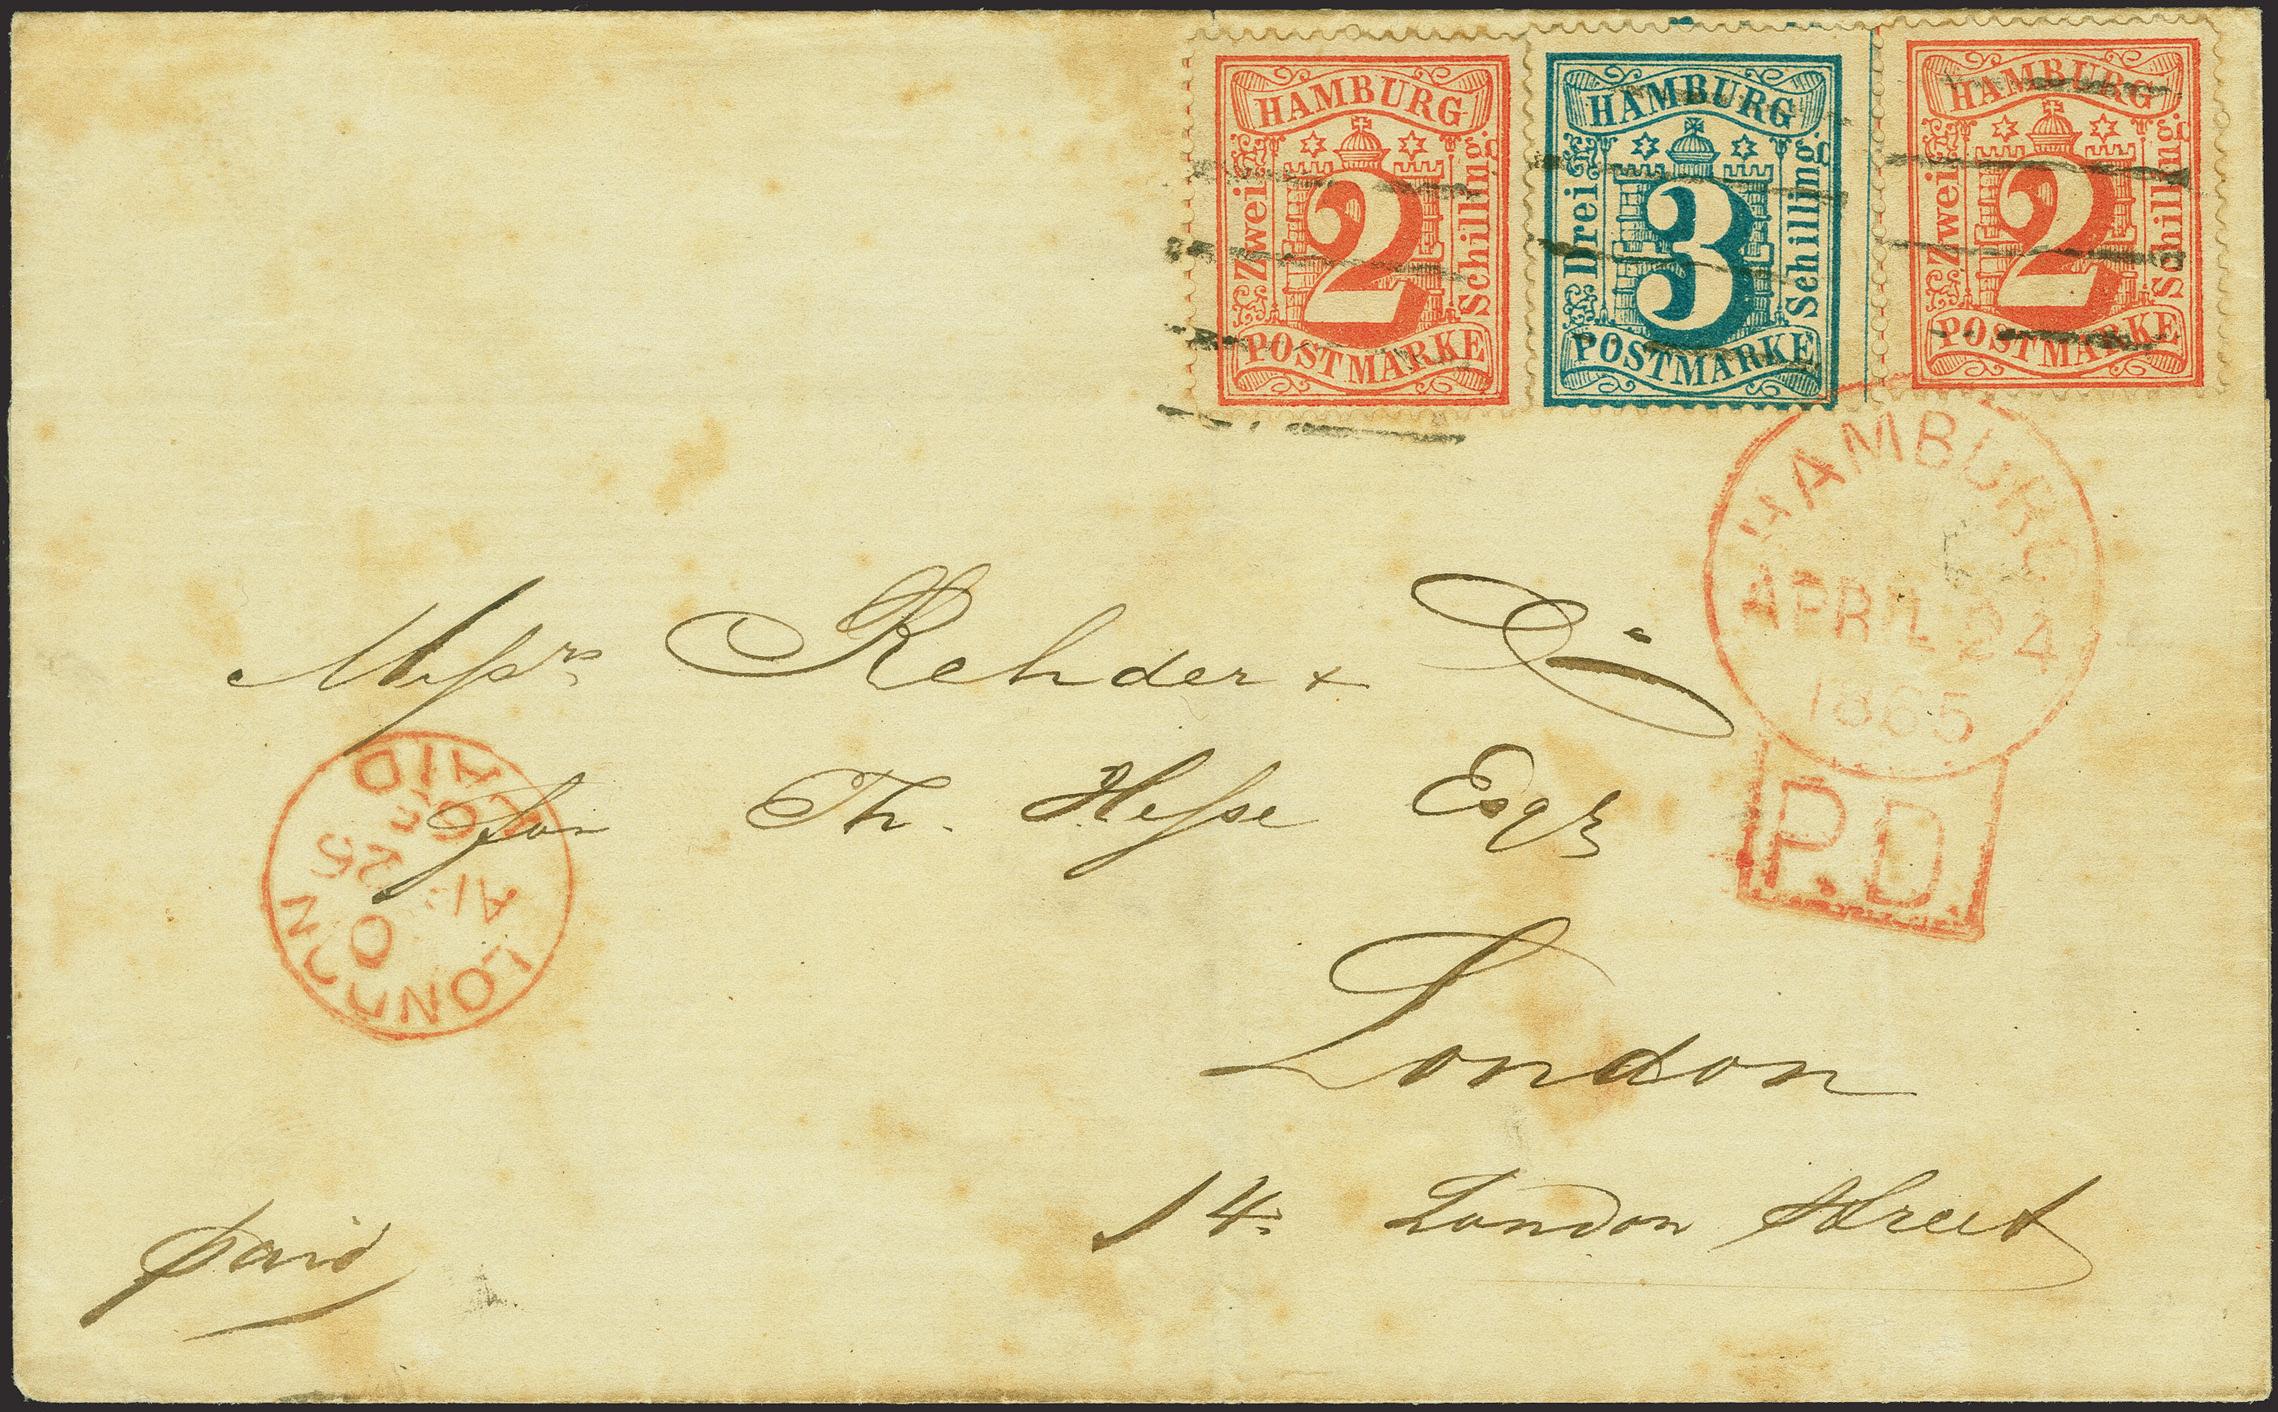 HAMBURG
Zwei
2
Schilling.
POSTMARKE
HAMBURG
Drei
3
Schilling.
POSTMARKE
HAMBURG
Zwei
2
Schilling.
POSTMARKE
HAMBURG
APRIL 24
1865
P.D.
Messrs Rehder & Co
for Th. Hesse Esqr
London
14. London Street
paid
LONDON
O
AP 25
65
PAID